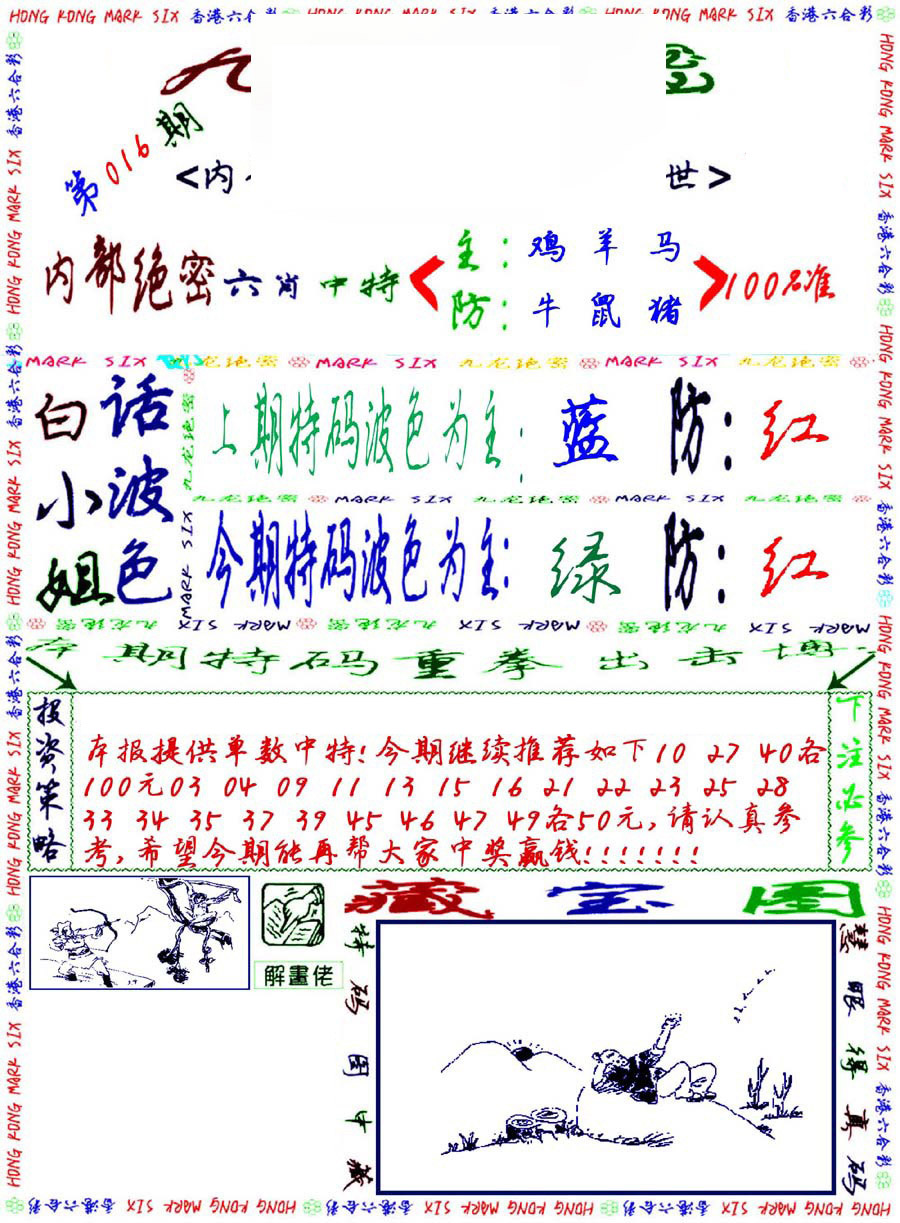 HONG KONG MARK SIX 香港六合彩
第016期
<内
世>
内部绝密六肖中特
主：鸡 羊 马
防：牛 鼠 猪
100%准
MARK SIX 九龙绝密 MARK SIX 九龙绝密 MARK SIX 九龙绝密
白话小波姐色
上期特码波色为主：蓝 防：红
九龙绝密 MARK SIX 九龙绝密 MARK SIX 九龙绝密
今期特码波色为主：绿 防：红
MARK SIX 九龙绝密 MARK SIX 九龙绝密 MARK SIX 九龙绝密
期特码重拳出击
投资策略
本报提供单数中特!今期继续推荐如下10 27 40各
100元03 04 09 11 13 15 16 21 22 23 25 28
33 34 35 37 39 45 46 47 49各50元,请认真参
考,希望今期能再帮大家中奖赢钱!!!!!!!
下注必参
解畫佬
藏宝图
特码图中藏
慧眼得真码
HONG KONG MARK SIX 香港六合彩